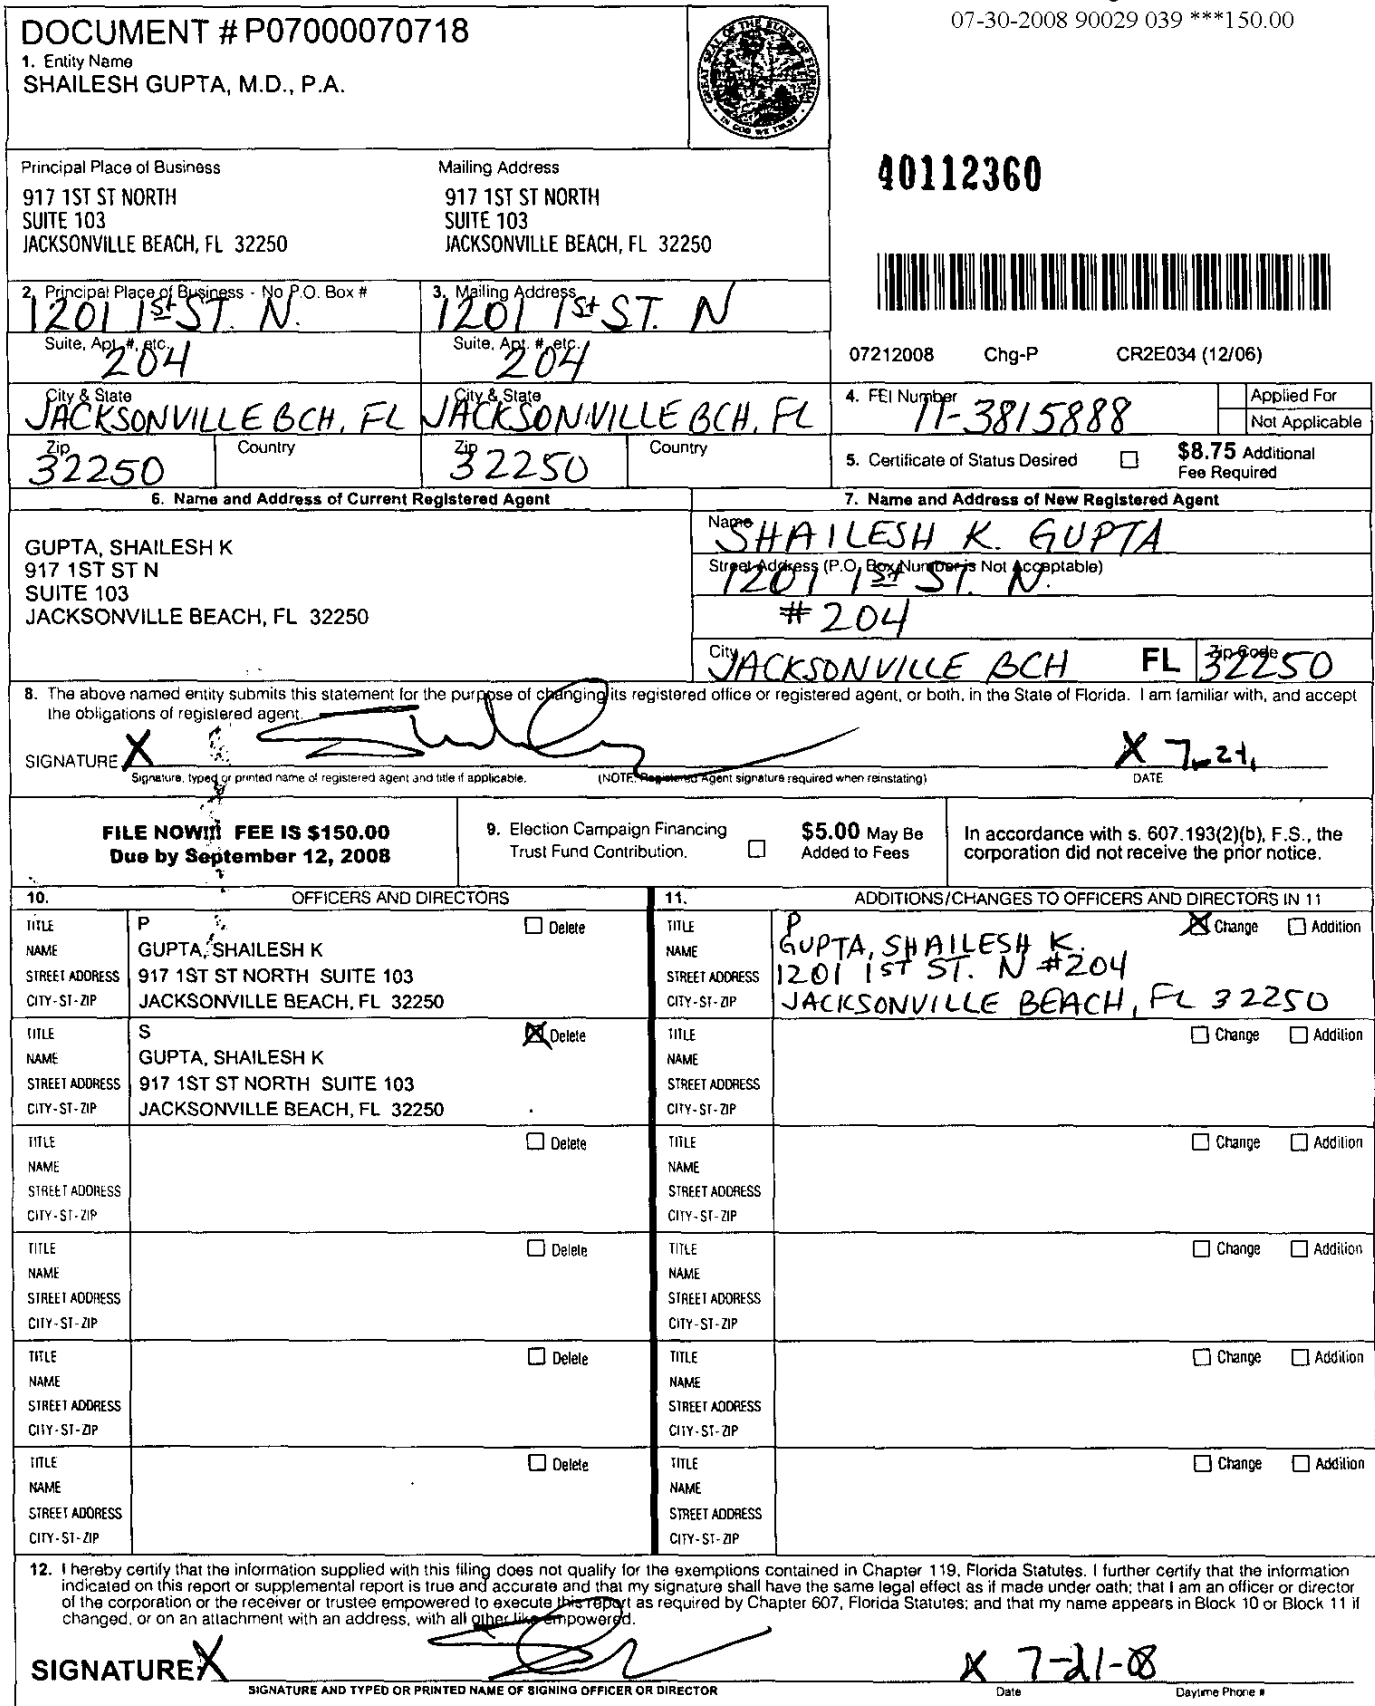 07-30-2008 90029 039 ***150.00
DOCUMENT # P07000070718
1. Entity Name
SHAILESH GUPTA, M.D., P.A.
GREAT SEAL OF THE STATE OF FLORIDA
IN GOD WE TRUST
Principal Place of Business
917 1ST ST NORTH
SUITE 103
JACKSONVILLE BEACH, FL 32250
Mailing Address
917 1ST ST NORTH
SUITE 103
JACKSONVILLE BEACH, FL 32250
40112360
2. Principal Place of Business - No P.O. Box #
1201 1st ST. N.
3. Mailing Address
1201 1st ST. N
Suite, Apt. #, etc.
204
Suite, Apt. #, etc.
204
07212008 Chg-P CR2E034 (12/06)
City & State
JACKSONVILLE BCH, FL
City & State
JACKSONVILLE BCH, FL
4. FEI Number
11-3815888
Applied For
Not Applicable
Zip
32250
Country
Zip
32250
Country
5. Certificate of Status Desired
$8.75 Additional
Fee Required
6. Name and Address of Current Registered Agent
GUPTA, SHAILESH K
917 1ST ST N
SUITE 103
JACKSONVILLE BEACH, FL 32250
7. Name and Address of New Registered Agent
Name
SHAILESH K. GUPTA
Street Address (P.O. Box Number is Not Acceptable)
1201 1st ST. N.
# 204
City
JACKSONVILLE BCH
FL
Zip Code
32250
8. The above named entity submits this statement for the purpose of changing its registered office or registered agent, or both, in the State of Florida. I am familiar with, and accept
the obligations of registered agent.
SIGNATURE X
X 7-21,
Signature, typed or printed name of registered agent and title if applicable.
(NOTE: Registered Agent signature required when reinstating)
DATE
FILE NOW!!! FEE IS $150.00
Due by September 12, 2008
9. Election Campaign Financing
Trust Fund Contribution.
$5.00 May Be
Added to Fees
In accordance with s. 607.193(2)(b), F.S., the
corporation did not receive the prior notice.
10. OFFICERS AND DIRECTORS
11. ADDITIONS/CHANGES TO OFFICERS AND DIRECTORS IN 11
TITLE P Delete
NAME GUPTA, SHAILESH K
STREET ADDRESS 917 1ST ST NORTH SUITE 103
CITY-ST-ZIP JACKSONVILLE BEACH, FL 32250
TITLE P Change Addition
NAME GUPTA, SHAILESH K.
STREET ADDRESS 1201 1ST ST. N #204
CITY-ST-ZIP JACKSONVILLE BEACH, FL 32250
TITLE S Delete
NAME GUPTA, SHAILESH K
STREET ADDRESS 917 1ST ST NORTH SUITE 103
CITY-ST-ZIP JACKSONVILLE BEACH, FL 32250
TITLE Change Addition
NAME
STREET ADDRESS
CITY-ST-ZIP
TITLE Delete
NAME
STREET ADDRESS
CITY-ST-ZIP
TITLE Change Addition
NAME
STREET ADDRESS
CITY-ST-ZIP
TITLE Delete
NAME
STREET ADDRESS
CITY-ST-ZIP
TITLE Change Addition
NAME
STREET ADDRESS
CITY-ST-ZIP
TITLE Delete
NAME
STREET ADDRESS
CITY-ST-ZIP
TITLE Change Addition
NAME
STREET ADDRESS
CITY-ST-ZIP
TITLE Delete
NAME
STREET ADDRESS
CITY-ST-ZIP
TITLE Change Addition
NAME
STREET ADDRESS
CITY-ST-ZIP
12. I hereby certify that the information supplied with this filing does not qualify for the exemptions contained in Chapter 119, Florida Statutes. I further certify that the information
indicated on this report or supplemental report is true and accurate and that my signature shall have the same legal effect as if made under oath; that I am an officer or director
of the corporation or the receiver or trustee empowered to execute this report as required by Chapter 607, Florida Statutes; and that my name appears in Block 10 or Block 11 if
changed, or on an attachment with an address, with all other like empowered.
SIGNATURE: X
X 7-21-08
SIGNATURE AND TYPED OR PRINTED NAME OF SIGNING OFFICER OR DIRECTOR
Date
Daytime Phone #